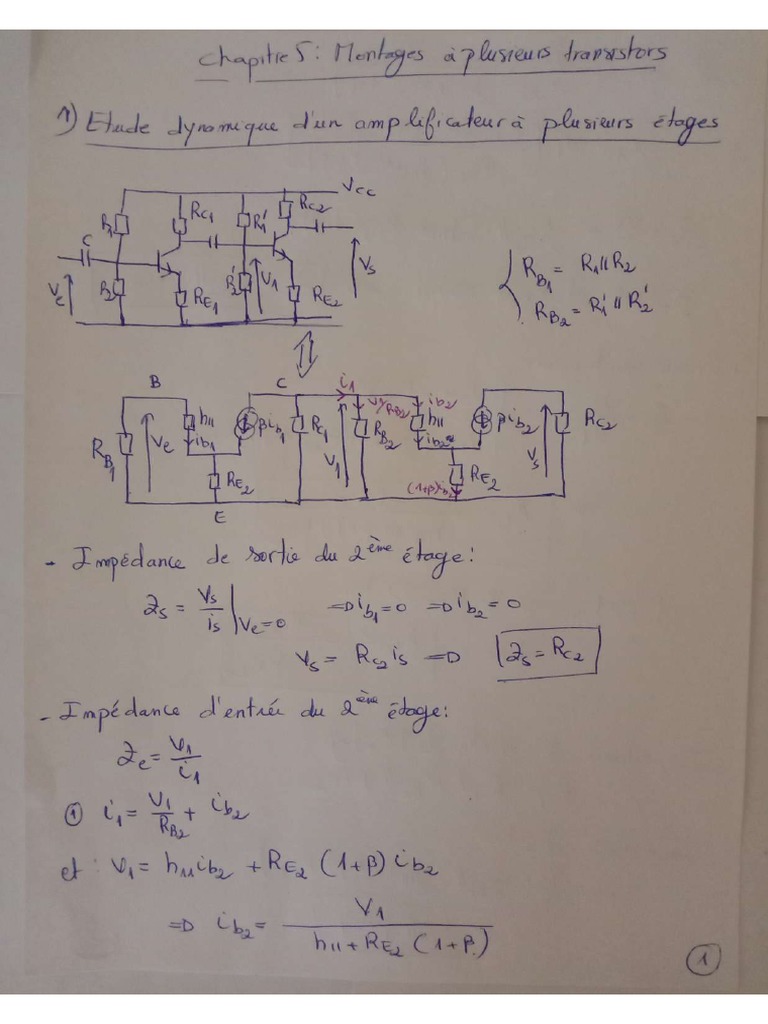 Chapitre 5: Montages à plusieurs transistors
1) Etude dynamique d'un amplificateur à plusieurs étages
Vcc
R1
RC1
R1'
RC2
C
R2
Ve
RE1
R2'
V1
RE2
Vs
RB1 = R1 // R2
RB2 = R1' // R2'
B
C
i1
V1/RB2
ib2
RB1
Ve
h11
ib1
βib1
RC1
V1
RB2
h11
ib2
βib2
Vs
RC2
RE2
RE2
(1+β)ib2
E
- Impédance de sortie du 2ème étage:
Zs = Vs/is |Ve=0 ⇒ ib1=0 ⇒ ib2=0
Vs = RC2 is ⇒ Zs = RC2
- Impédance d'entrée du 2ème étage:
Ze = V1/i1
① i1 = V1/RB2 + ib2
et : V1 = h11 ib2 + RE2 (1+β) ib2
⇒ ib2 = V1 / (h11 + RE2 (1+β))
1